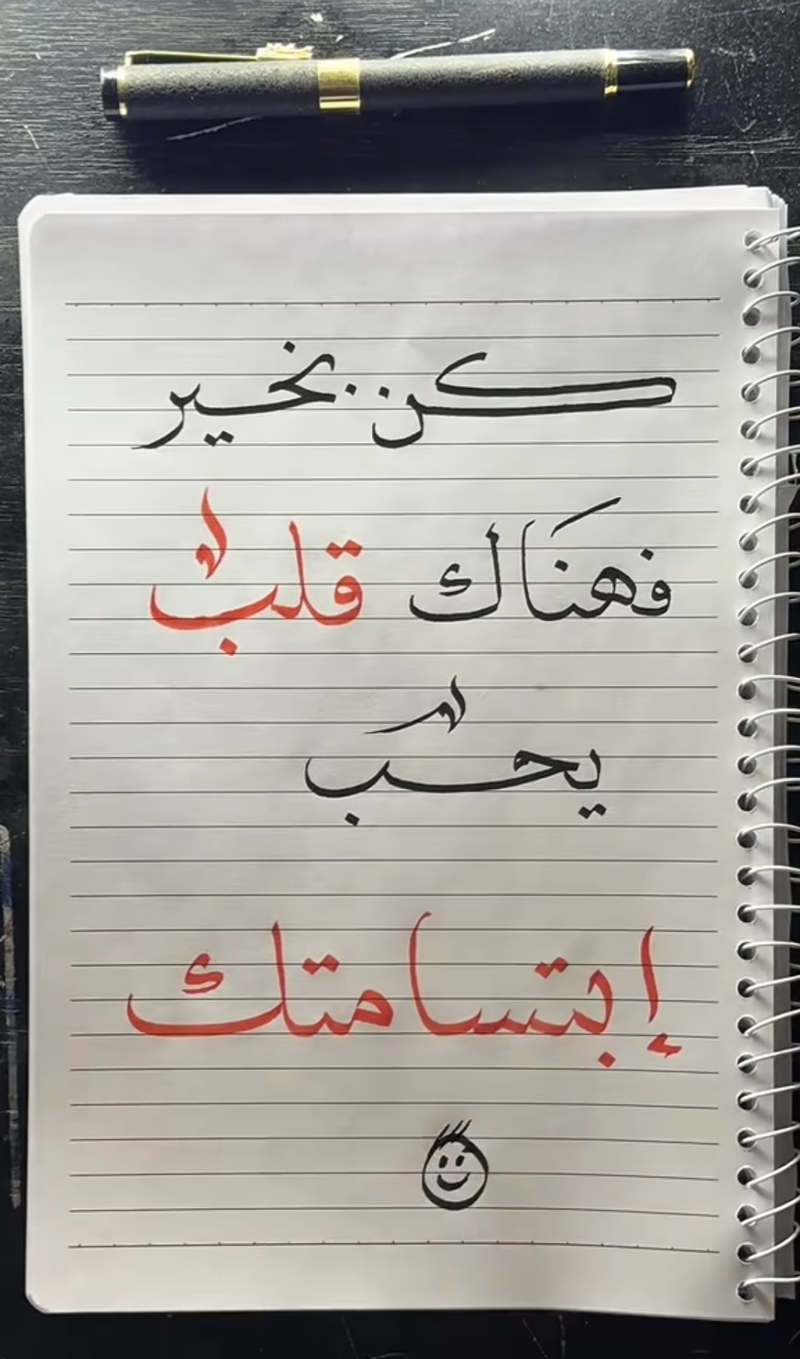 كن.. بخير
فهنَاك قلب
يحب
إبتسامتك